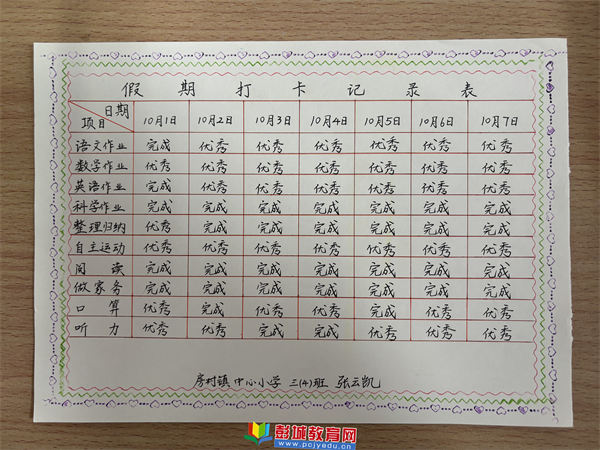 假期打卡记录表
日期 10月1日 10月2日 10月3日 10月4日 10月5日 10月6日 10月7日
项目
语文作业 完成 优秀 优秀 优秀 优秀 优秀 优秀
数学作业 优秀 优秀 优秀 优秀 优秀 优秀 优秀
英语作业 完成 优秀 优秀 优秀 优秀 优秀 优秀
科学作业 完成 完成 完成 完成 完成 完成 完成
整理归纳 优秀 完成 完成 完成 完成 完成 完成
自主运动 优秀 优秀 优秀 优秀 优秀 优秀 优秀
阅读 完成 完成 完成 完成 完成 完成 完成
做家务 完成 完成 完成 完成 完成 完成 完成
口算 优秀 完成 优秀 优秀 完成 优秀 优秀
听力 优秀 优秀 完成 完成 优秀 优秀 优秀
房村镇中心小学 三(4)班 张云凯
彭城教育网
www.pcjyedu.cn